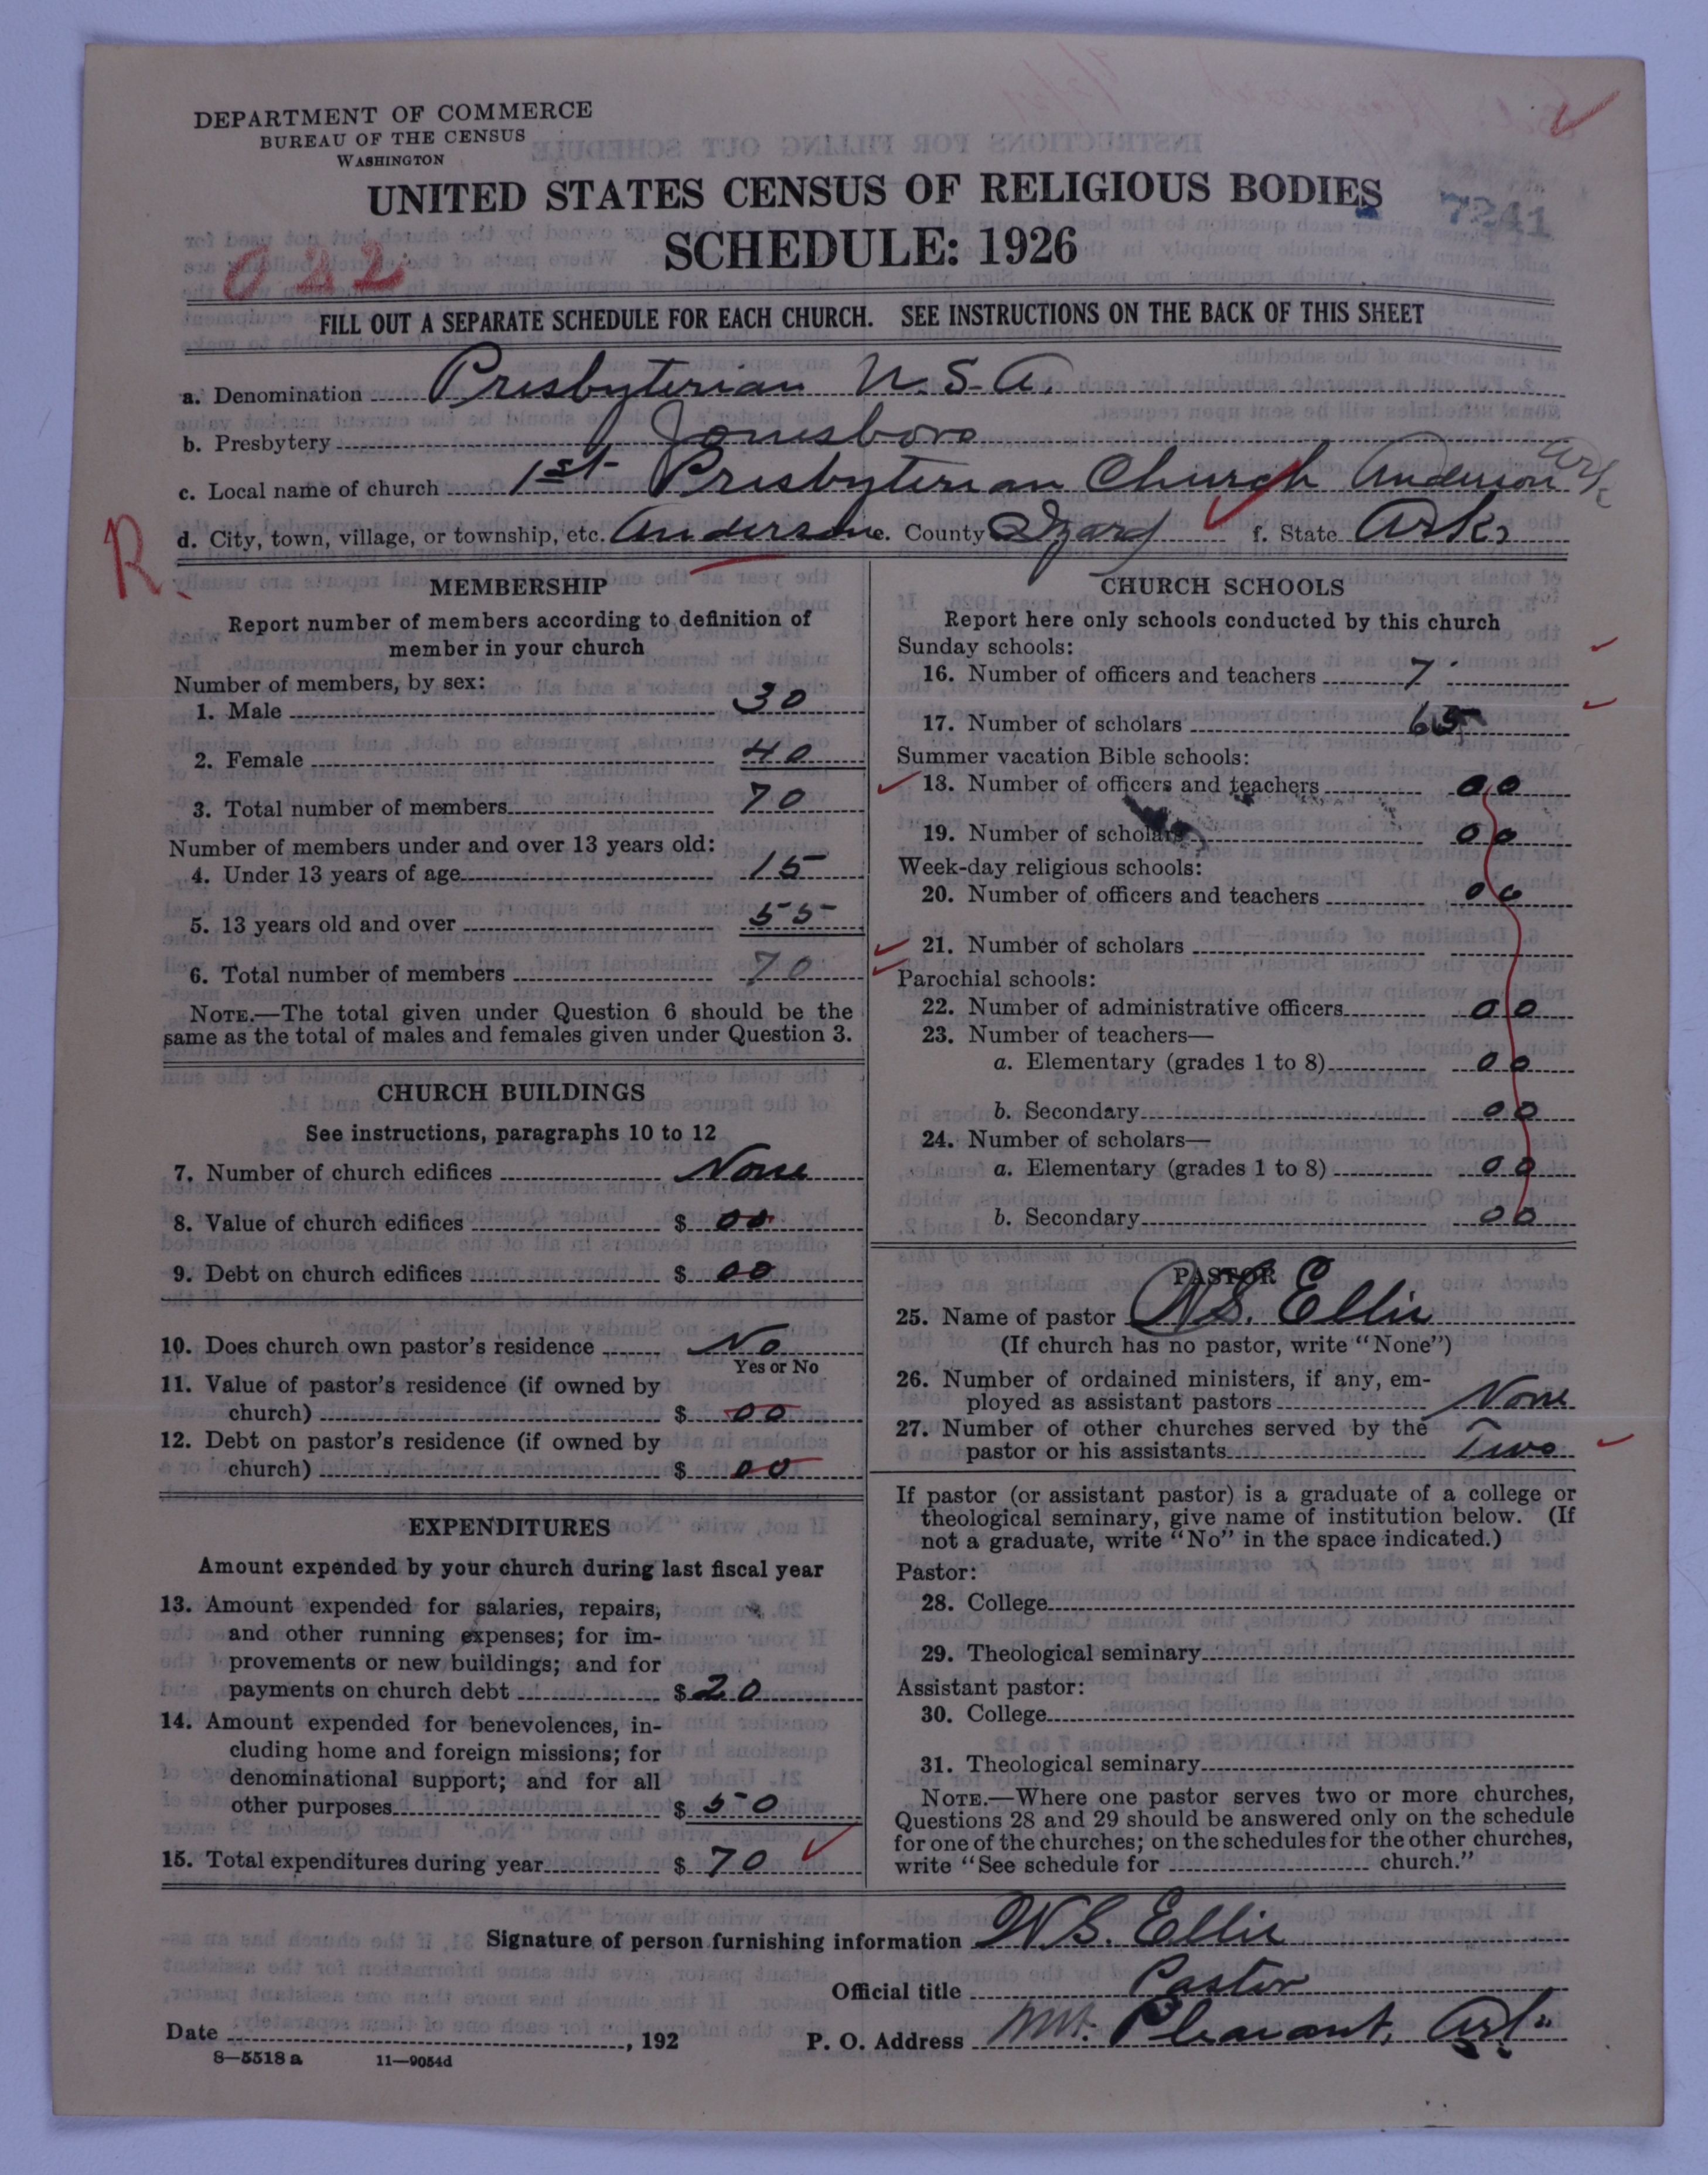 DEPARTMENT OF COMMERCE
BUREAU OF THE CENSUS
WASHINGTON
UNITED STATES CENSUS OF RELIGIOUS BODIES
7241
SCHEDULE: 1926
022
FILL OUT A SEPARATE SCHEDULE FOR EACH CHURCH. SEE INSTRUCTIONS ON THE BACK OF THIS SHEET
a. Denomination Presbyterian U.S.A.
b. Presbytery Jonesboro
c. Local name of church 1st Presbyterian Church Anderson Ark
R
d. City, town, village, or township, etc. Anderson e. County Izard f. State Ark,
MEMBERSHIP
Report number of members according to definition of
member in your church
Number of members, by sex:
1. Male 30
2. Female 40
3. Total number of members 70
Number of members under and over 13 years old:
4. Under 13 years of age 15
5. 13 years old and over 55
6. Total number of members 70
NOTE.—The total given under Question 6 should be the
same as the total of males and females given under Question 3.
CHURCH BUILDINGS
See instructions, paragraphs 10 to 12
7. Number of church edifices None
8. Value of church edifices $ 00
9. Debt on church edifices $ 00
10. Does church own pastor's residence No
Yes or No
11. Value of pastor's residence (if owned by
church) $ 00
12. Debt on pastor's residence (if owned by
church) $ 00
EXPENDITURES
Amount expended by your church during last fiscal year
13. Amount expended for salaries, repairs,
and other running expenses; for im-
provements or new buildings; and for
payments on church debt $ 20
14. Amount expended for benevolences, in-
cluding home and foreign missions; for
denominational support; and for all
other purposes $ 50
15. Total expenditures during year $ 70
CHURCH SCHOOLS
Report here only schools conducted by this church
Sunday schools:
16. Number of officers and teachers 7
17. Number of scholars 65
Summer vacation Bible schools:
18. Number of officers and teachers 00
19. Number of scholars 00
Week-day religious schools:
20. Number of officers and teachers 00
21. Number of scholars
Parochial schools:
22. Number of administrative officers 00
23. Number of teachers—
a. Elementary (grades 1 to 8) 00
b. Secondary 00
24. Number of scholars—
a. Elementary (grades 1 to 8) 00
b. Secondary 00
PASTOR
25. Name of pastor W.S. Ellis
(If church has no pastor, write "None")
26. Number of ordained ministers, if any, em-
ployed as assistant pastors None
27. Number of other churches served by the
pastor or his assistants Two
If pastor (or assistant pastor) is a graduate of a college or
theological seminary, give name of institution below. (If
not a graduate, write "No" in the space indicated.)
Pastor:
28. College
29. Theological seminary
Assistant pastor:
30. College
31. Theological seminary
NOTE.—Where one pastor serves two or more churches,
Questions 28 and 29 should be answered only on the schedule
for one of the churches; on the schedules for the other churches,
write "See schedule for church."
Signature of person furnishing information W.S. Ellis
Official title Pastor
Date , 192 P. O. Address Mt. Pleasant, Ark
8—5518 a 11—9054d